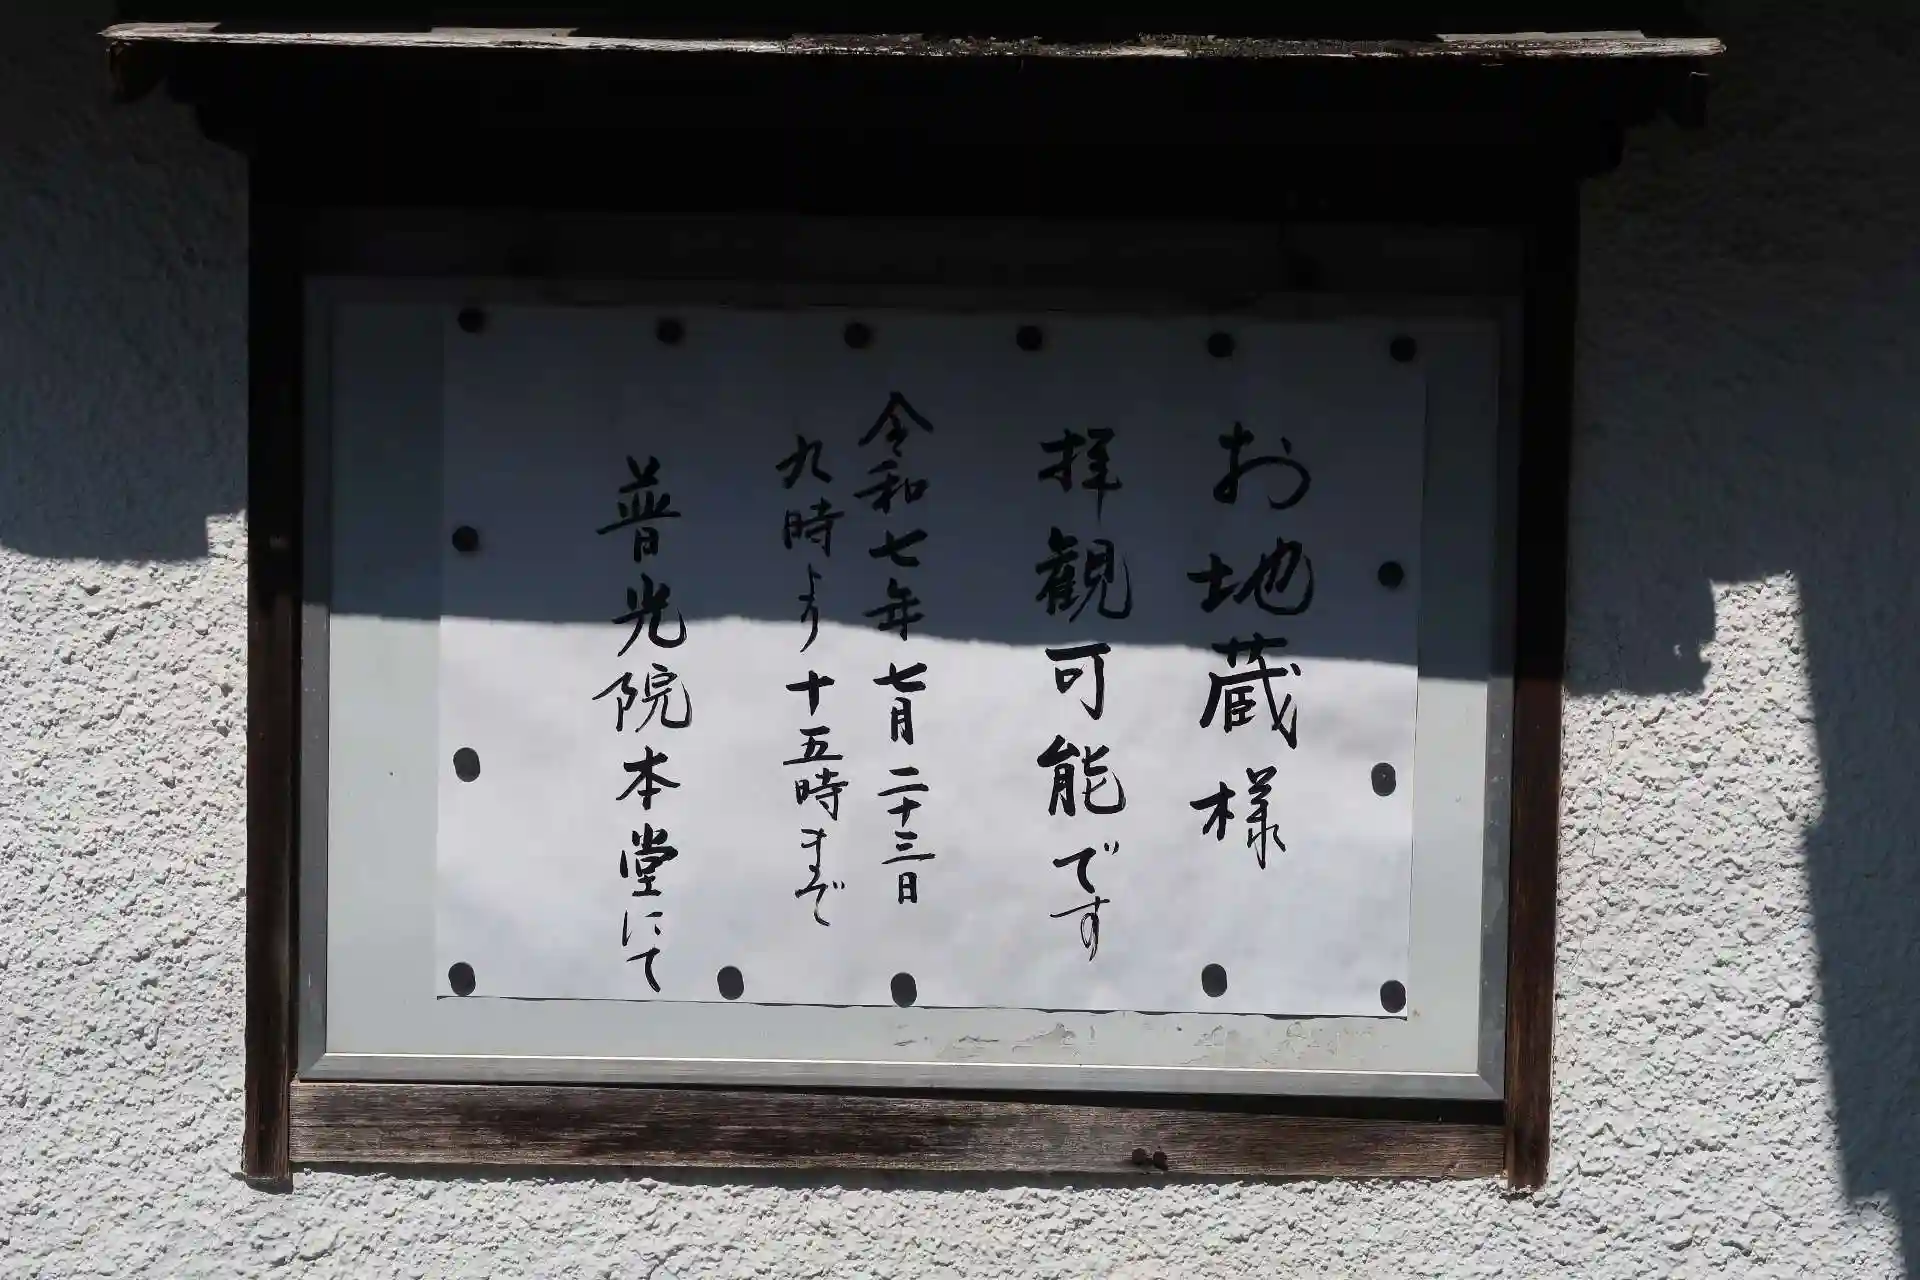 お地蔵様
拝観可能です
令和七年七月二十三日
九時より十五時まで
普光院本堂にて